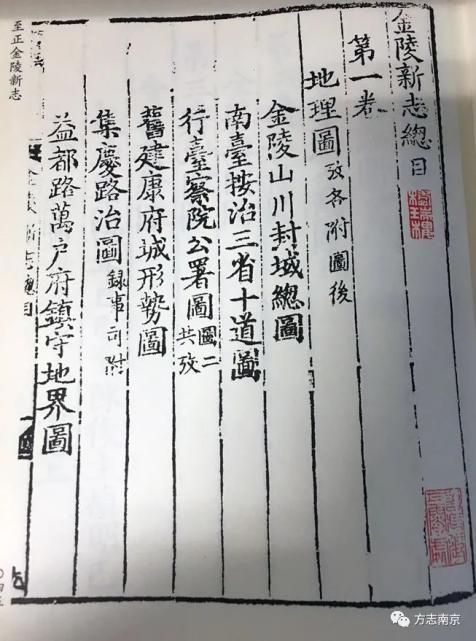 金陵新志總目
第一卷
地理圖攷各附圖後
金陵山川封域總圖
南臺按治三省十道圖
行臺察院公署圖圖二共攷
舊建康府城形勢圖
集慶路治圖録事司附
益都路萬户府鎮守地界圖
至正金陵新志
方志南京